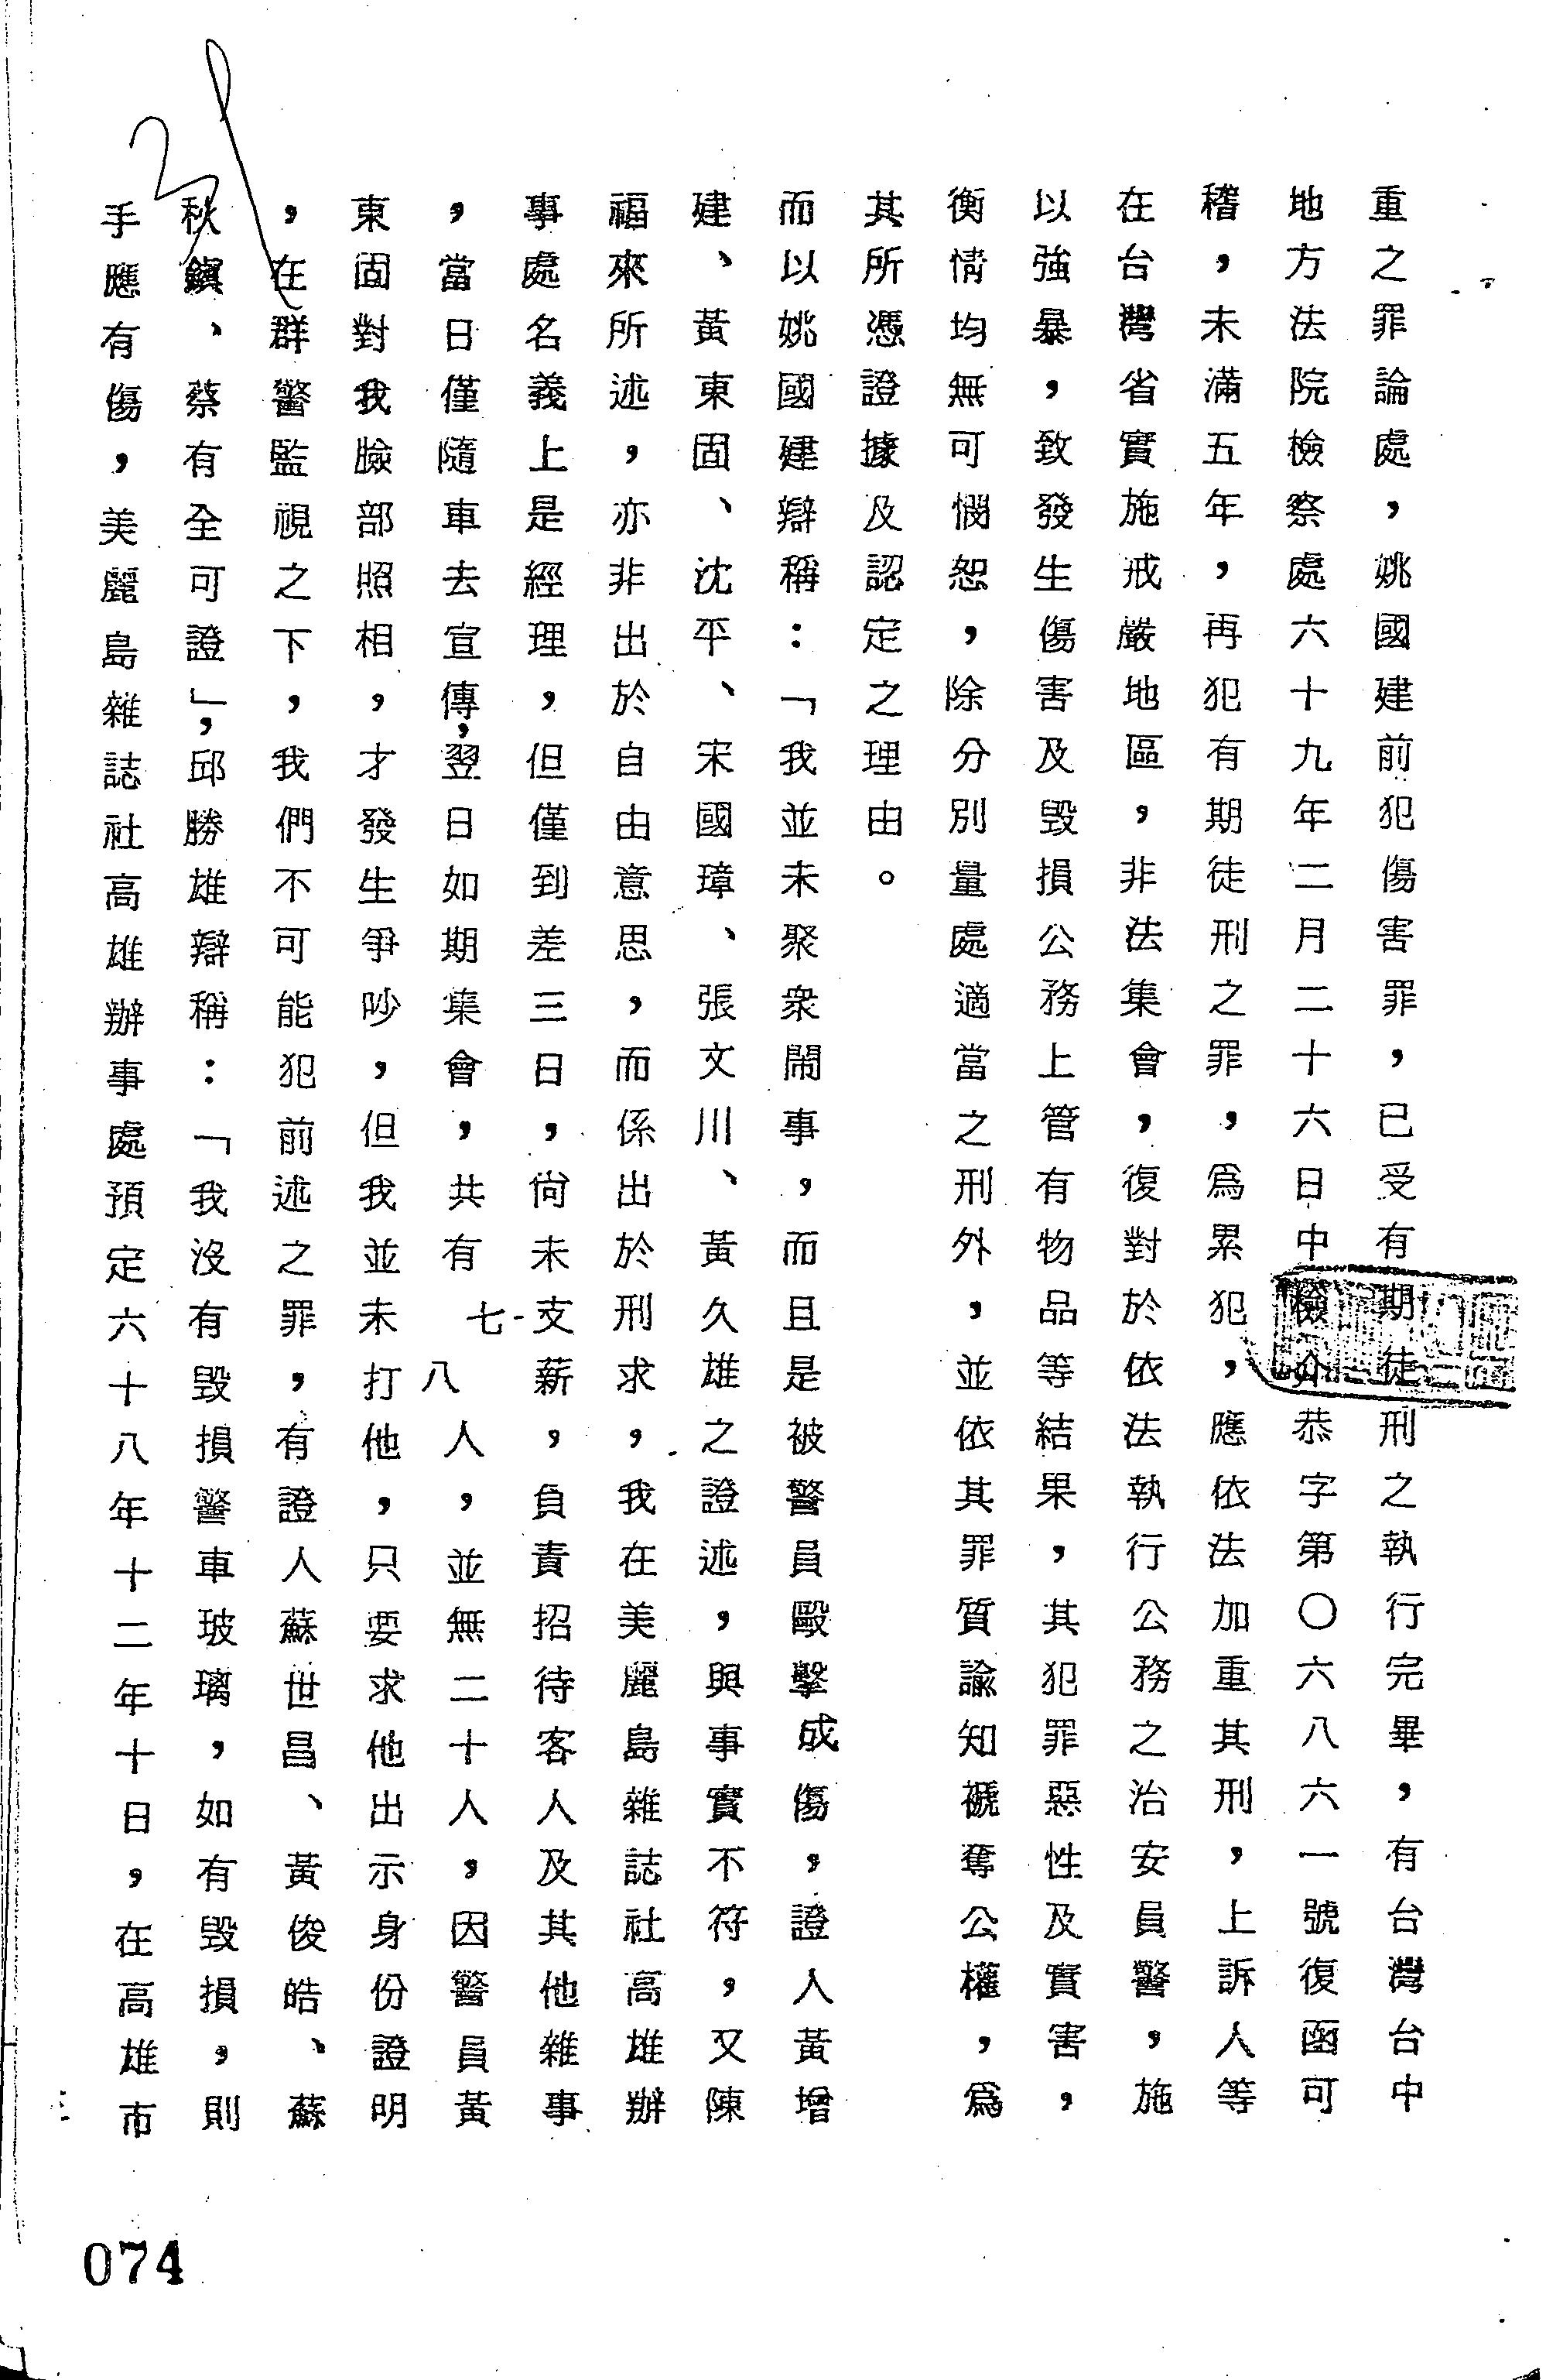 重之罪論處，姚國建前犯傷害罪，已受有期徒刑之執行完畢，有台灣台中
地方法院檢察處六十九年二月二十六日中檢介恭字第〇六八六一號復函可
稽，未滿五年，再犯有期徒刑之罪，爲累犯，應依法加重其刑，上訴人等
在台灣省實施戒嚴地區，非法集會，復對於依法執行公務之治安員警，施
以強暴，致發生傷害及毀損公務上管有物品等結果，其犯罪惡性及實害，
衡情均無可憫恕，除分別量處適當之刑外，並依其罪質諭知褫奪公權，爲
其所憑證據及認定之理由。
而以姚國建辯稱：「我並未聚衆鬧事，而且是被警員毆擊成傷，證人黃增
建、黃東固、沈平、宋國璋、張文川、黃久雄之證述，與事實不符，又陳
福來所述，亦非出於自由意思，而係出於刑求，我在美麗島雜誌社高雄辦
事處名義上是經理，但僅到差三日，尙未支薪，負責招待客人及其他雜事
，當日僅隨車去宣傳，翌日如期集會，共有七-八人，並無二十人，因警員黃
東固對我臉部照相，才發生爭吵，但我並未打他，只要求他出示身份證明
，在群警監視之下，我們不可能犯前述之罪，有證人蘇世昌、黃俊皓、蘇
秋鎭、蔡有全可證」，邱勝雄辯稱：「我沒有毀損警車玻璃，如有毀損，則
手應有傷，美麗島雜誌社高雄辦事處預定六十八年十二年十日，在高雄市
074